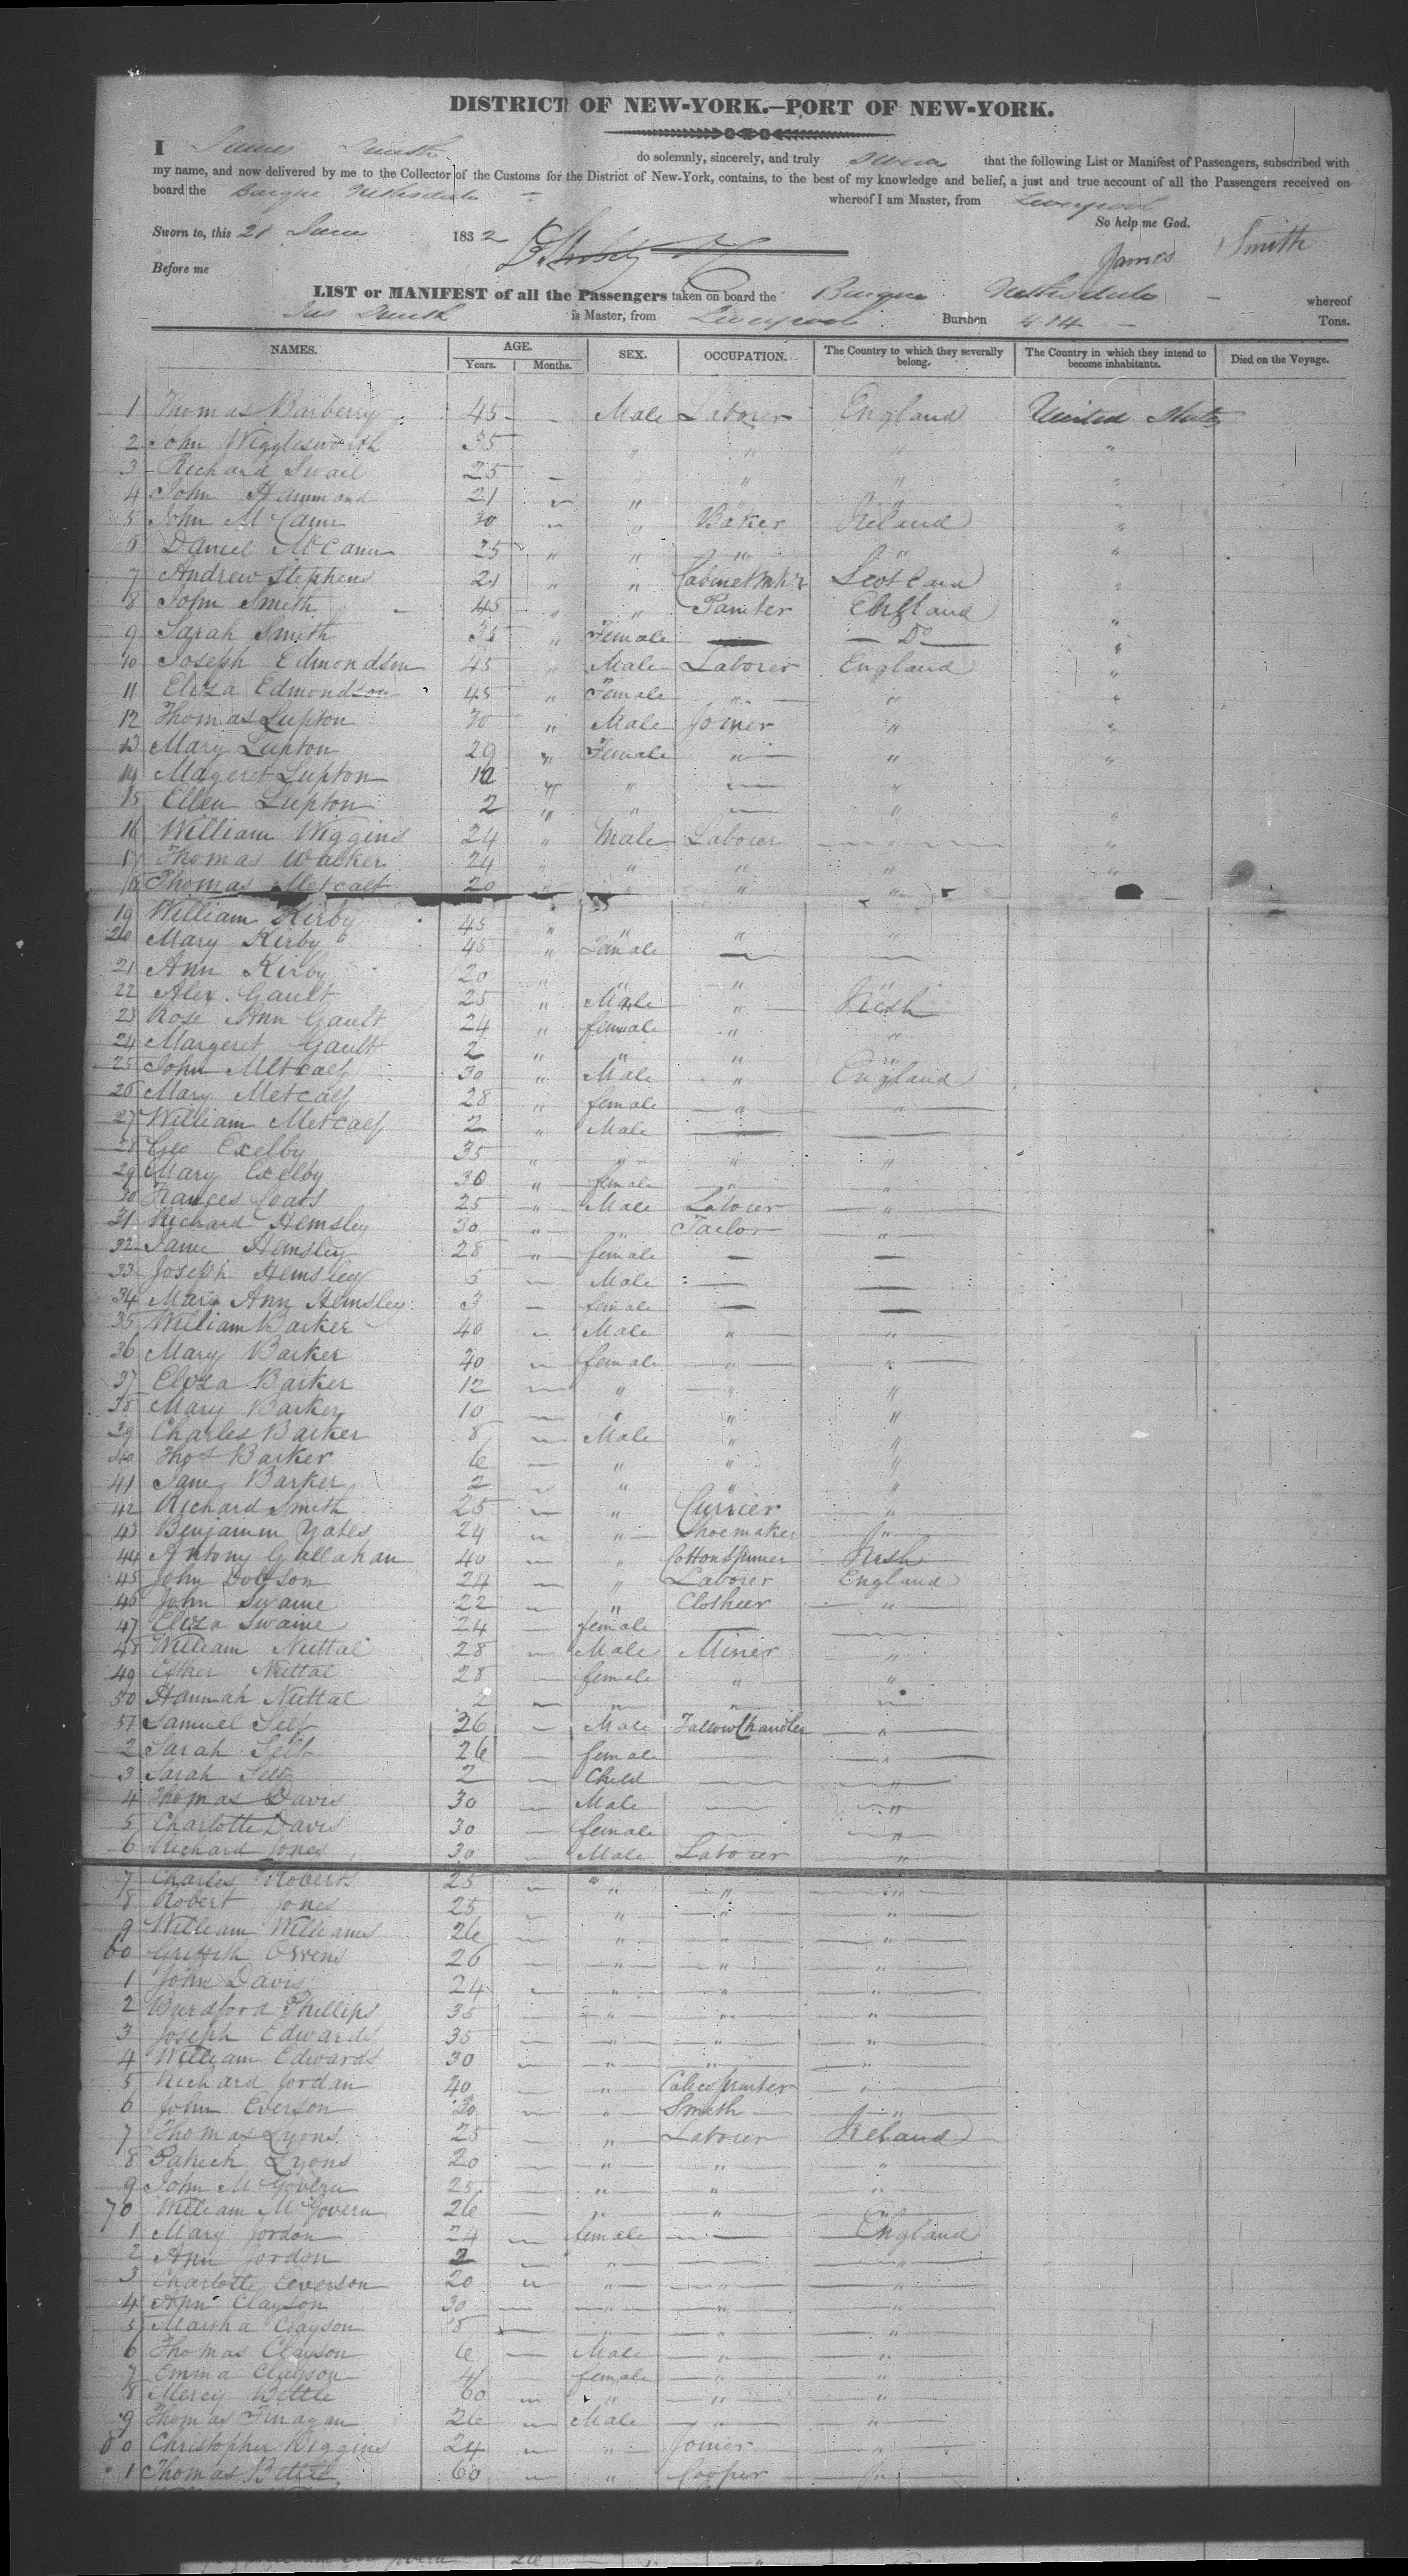 DISTRICT OF NEW-YORK.—PORT OF NEW-YORK.
I James Smith do solemnly, sincerely, and truly swear that the following List or Manifest of Passengers, subscribed with
my name, and now delivered by me to the Collector of the Customs for the District of New-York, contains, to the best of my knowledge and belief, a just and true account of all the Passengers received on
board the Barque whereof I am Master, from Liverpool
So help me God.
Sworn to, this 21 June 1832 James Smith
Before me
LIST or MANIFEST of all the Passengers taken on board the Barque whereof
Jas Smith is Master, from Liverpool Burthen 414 Tons.
NAMES. AGE. SEX. OCCUPATION. The Country to which they severally belong. The Country in which they intend to become inhabitants. Died on the Voyage.
Years. Months.
1 Thomas Barberry 45 - Male Laborer England United States
2 John Wigglesworth 35 " " " "
3 Richard Swail 25 - " " " "
4 John Hammond 21 " " " "
5 John McCann 30 " Baker Ireland "
6 Daniel McCann 25 " " " " "
7 Andrew Stephens 21 " " Cabinet Mkr Scotland "
8 John Smith 45 " " Painter England "
9 Sarah Smith 35 " Female — Do "
10 Joseph Edmondson 45 " Male Laborer England "
11 Eliza Edmondson 45 " Female " " "
12 Thomas Lupton 30 " Male Joiner " "
13 Mary Lupton 29 " Female " " "
14 Mageret Lupton " " — "
15 Ellen Lupton 2 " " — " "
16 William Wiggins 24 " Male Laborer " "
17 Thomas Walker 24 " " " " "
18 Thomas Metcalf 20 " " " "
19 William Kirby 45 " " " "
20 Mary Kirby 45 " Female — —
21 Ann Kirby 20 " " "
22 Alex. Gault 25 " Male " Irish
23 Rose Ann Gault 24 " female " "
24 Margeret Gault 2 " " " "
25 John Metcalf 30 " Male " England
26 Mary Metcalf 28 " female " "
27 William Metcalf 2 " Male — —
28 Geo Exelby 35 " " " "
29 Mary Exelby 30 " female " "
30 Frances Coats 25 " Male Laborer "
31 Richard Hemsley 30 " " Tailor "
32 Jane Hemsley 28 " female — —
33 Joseph Hemsley 5 - Male — —
34 Mary Ann Hemsley 3 - female — —
35 William Barker 40 - Male " "
36 Mary Barker 40 - female " "
37 Eliza Barker 12 - " " "
38 Mary Barker 10 - " " "
39 Charles Barker 8 - Male " "
40 Thos Barker 6 - " " "
41 Jane Barker 2 - " " "
42 Richard Smith 25 - " Currier "
43 Benjamin Yates 24 - " Shoemaker "
44 Antony Gallahan 40 - " Cotton Spinner Irish
45 John Dobson 24 - " Laborer England
46 John Swaine 22 - " Clothier "
47 Eliza Swaine 24 - female — —
48 William Nuttal 28 - Male Miner "
49 Esther Nuttal 28 - female " "
50 Hannah Nuttal 2 - " " "
51 Samuel Self 36 - Male Tallow Chandler "
2 Sarah Self 26 - female — "
3 Sarah Self 2 - Child — "
4 Thomas Davis 30 - Male — "
5 Charlotte Davis 30 - female — "
6 Richard Jones 30 - Male Laborer "
7 Charles Roberts 25 - " " "
8 Robert Jones 25 - " " "
9 William Williams 26 - " " "
60 Griffith Owens 26 - " " "
1 John Davis 24 - " " "
2 Phillips 35 - " " "
3 Joseph Edwards 35 - " " "
4 William Edwards 30 - " " "
5 Richard Jordan 40 - " Calico Printer "
6 John Everson 20 - " Smith "
7 Thomas Lyons 25 - " Laborer Ireland
8 Patrick Lyons 20 - " " "
9 John McGovern 25 - " " "
70 William McGovern 26 - " " "
1 Mary Jordon 24 - female — England
2 Ann Jordon 2 - " — "
3 Charlotte Everson 20 - " " "
4 Ann Clayson 30 - " " "
5 Martha Clayson 8 - " " "
6 Thomas Clayson 6 - Male " "
7 Emma Clayson 4 - female " "
8 Mercy Bettle 60 - " " "
9 Thomas Finagan 26 - Male " "
80 Christopher Wiggins 24 - " Joiner "
1 Thomas Bettle 60 - " Cooper "